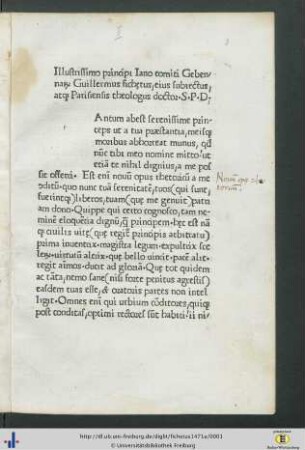 Illustrissimo principi Iano comiti Geben-
naꝝ Guillermus fichetus, eius subiectus,
atq; Parisiensis theologus doctor S. P. D.
Antum abest serenissime prin-
ceps ut a tua præstantia, meisq;
moribus abhorreat munus, qđ
nūc tibi meo nomine mitto ut
etiā te nihil dignius, a me pos
sit offerri. Est eni nouū opus rhetoricū a me
editū quo nunc tuā serenitatē, tuos (qui sunt,
fuerintq;) liberos, tuam (que me genuit) patri
am dono. Quippe qui certo cognosco, tam ne-
minē eloquētia dignū, q̄ principem. hæc est nā
q; ciuilis uitę (quę regiē principia arbitratur)
prima inuentrix magistra legum expultrix sce
leꝝ uirtutū altrix que bello uincit pacē alit
regit aīmos ducit ad gloriā. Que tot quidem
ac tāta, nemo sane (nisi forte penitus agrestis)
easdem tuas esse, & oratoris partes non intel
ligit. Omnes eni qui urbium cōditores, quiq;
post conditas, optimi rectores sūt habiti ii ni-
http://dl.ub.uni-freiburg.de/diglit/fichetus1471a/0001
© Universitätsbibliothek Freiburg
Baden-Württemberg